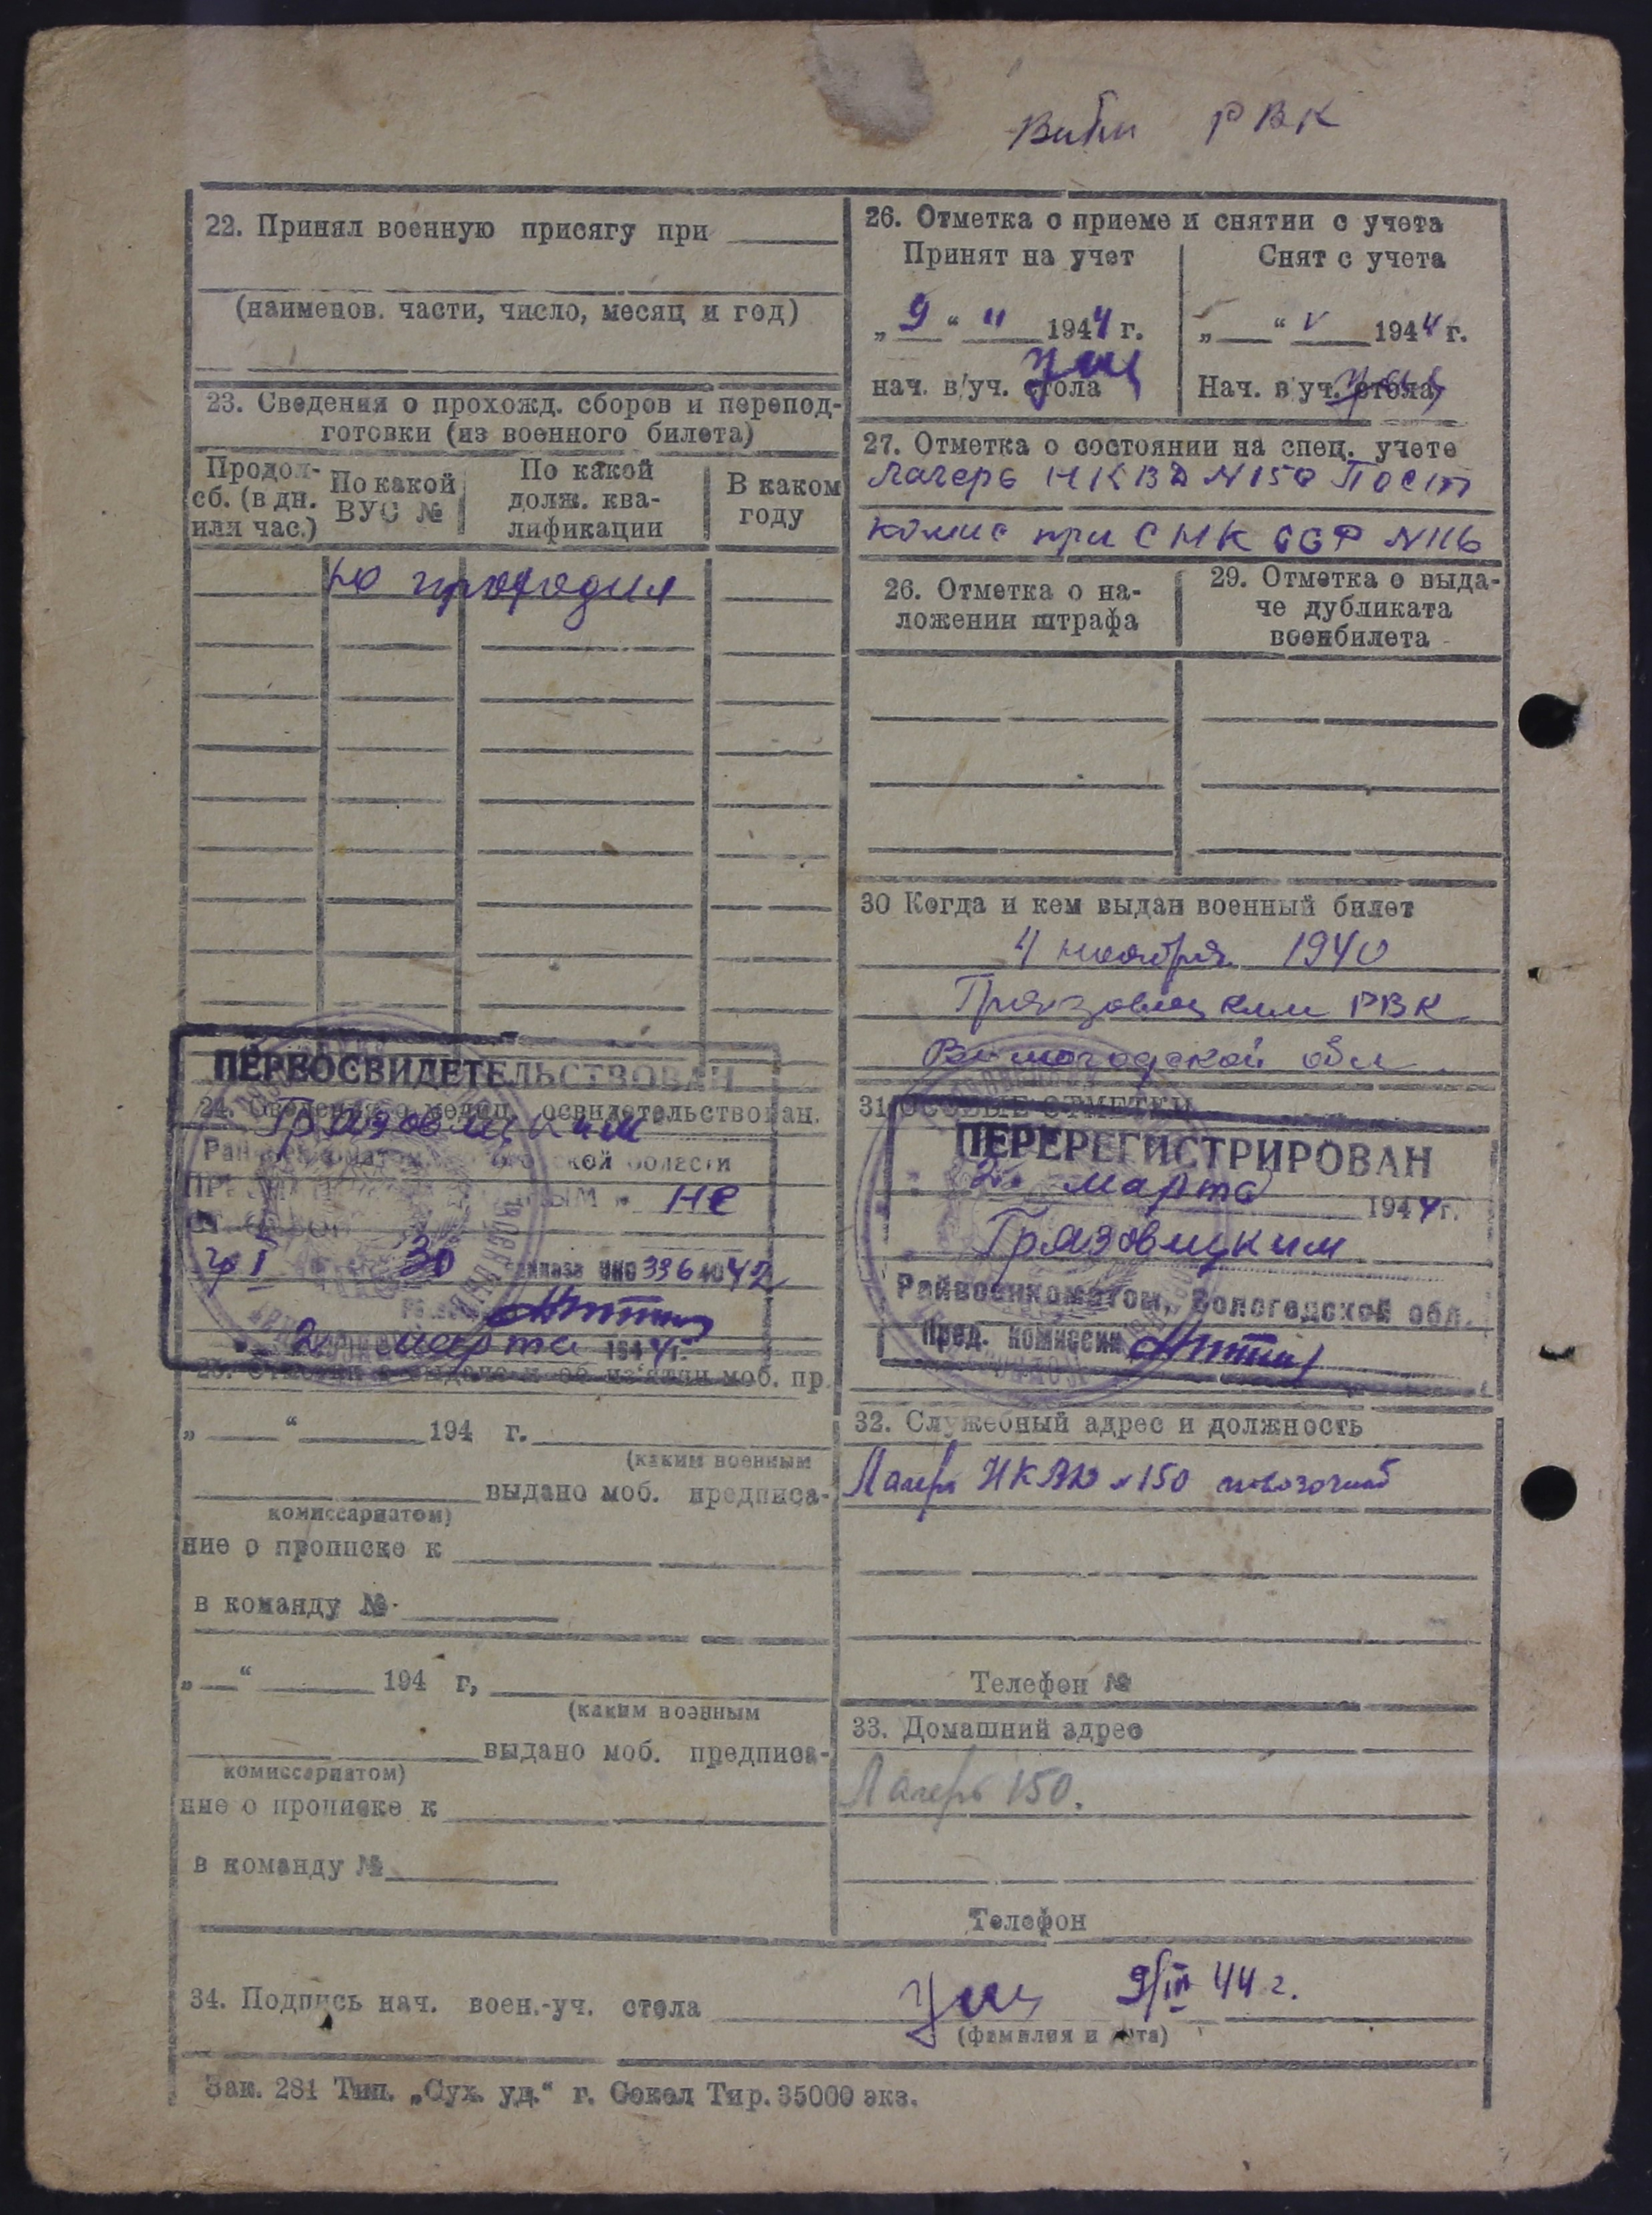 РВК
22. Принял военную присягу при
(наименов. части, число, месяц и год)
23. Сведения о прохожд. сборов и перепод-
готовки (из военного билета)
Продол-
сб. (в дн.
или час.)
По какой
ВУС №
По какой
долж. ква-
лификации
В каком
году
не проходил
ПЕРЕОСВИДЕТЕЛЬСТВОВАН
24. Сведения о медиц. освидетельствован.
Грязовецким
Райвоенкоматом Вологодской области
не
гр I 30 приказа НКО 336 1942
2 марта 1944 г.
25. Отметки о выдаче и об из'ятии моб. пр.
„ “ 194 г.
(каким военным
выдано моб. предписа-
комиссариатом)
ние о прописке к
в команду №
„ “ 194 г,
(каким военным
выдано моб. предписа-
комиссариатом)
ние о прописке к
в команду №
26. Отметка о приеме и снятии с учета
Принят на учет
„ 9 “ 1944 г.
нач. в/уч. стола
Снят с учета
„ “ V 1944 г.
Нач. в/уч. стола
27. Отметка о состоянии на спец. учете
Лагерь НКВД N 150 Пост
комис при СНК ССР N 116
26. Отметка о на-
ложении штрафа
29. Отметка о выда-
че дубликата
военбилета
30 Когда и кем выдан военный билет
4 ноября 1940
Грязовецким РВК
Вологодской обл
31 ОСОБЫЕ ОТМЕТКИ
ПЕРЕРЕГИСТРИРОВАН
2 марта 1944 г.
Грязовецким
Райвоенкоматом, Вологодской обл.
Пред. комиссии
32. Служебный адрес и должность
Лагерь НКВД N 150
Телефон №
33. Домашний адрес
Лагерь 150.
Телефон
34. Подпись нач. воен.-уч. стола 9/III 44 г.
(фамилия и дата)
Зак. 281 Тип. „Сух. уд.“ г. Сокол Тир. 35000 экз.